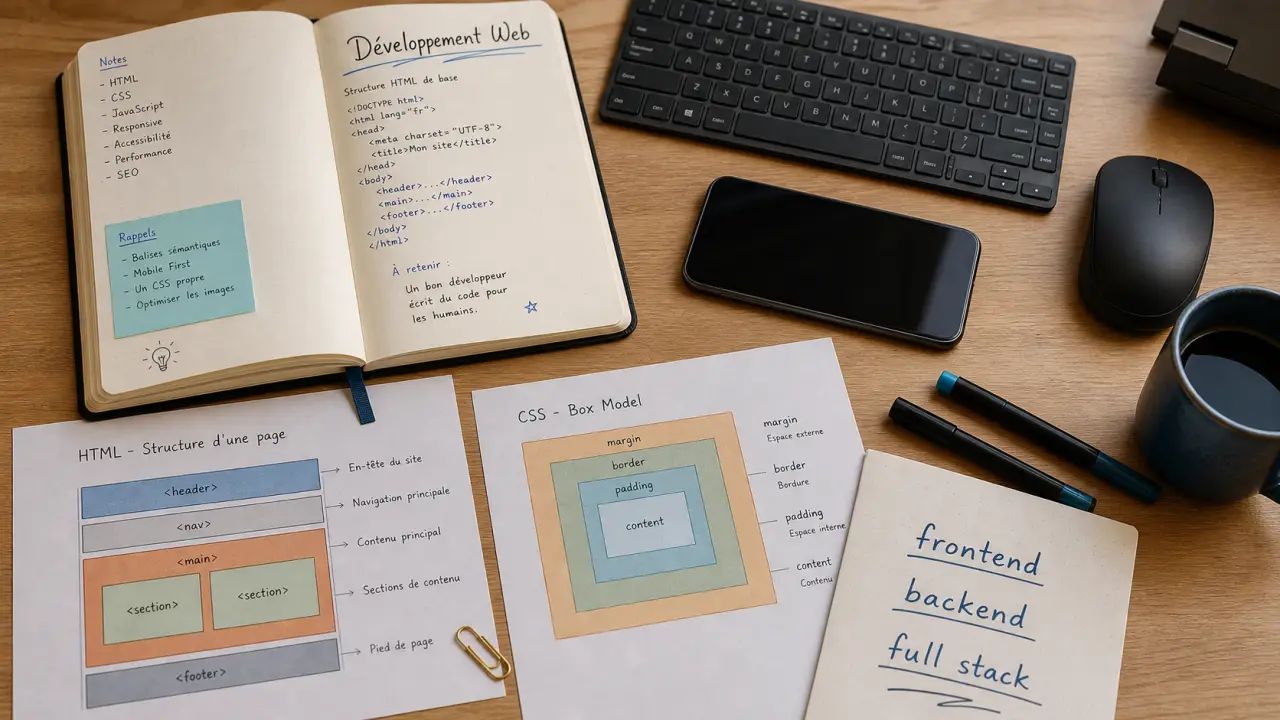 Notes
- HTML
- CSS
- JavaScript
- Responsive
- Accessibilité
- Performance
- SEO
Rappels
- Balises sémantiques
- Mobile First
- Un CSS propre
- Optimiser les images
Développement Web
Structure HTML de base
<!DOCTYPE html>
<html lang="fr">
<head>
<meta charset="UTF-8">
<title>Mon site</title>
</head>
<body>
<header>...</header>
<main>...</main>
<footer>...</footer>
</body>
</html>
À retenir :
Un bon développeur
écrit du code pour
les humains.
HTML - Structure d'une page
<header>
<nav>
<main>
<section> <section>
<footer>
En-tête du site
Navigation principale
Contenu principal
Sections de contenu
Pied de page
CSS - Box Model
margin
border
padding
content
margin
Espace externe
border
Bordure
padding
Espace interne
content
Contenu
frontend
backend
full stack
Q W E R T Y U I O P
A S D F G H J K L
Z X C V B N M